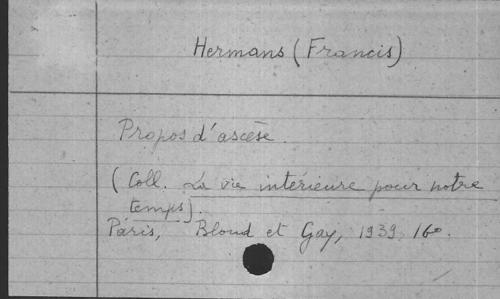 Hermans (Francis)
Propos d'ascèse.
(Coll. La vie intérieure pour notre
temps).
Paris, Bloud et Gay, 1939, 16°.